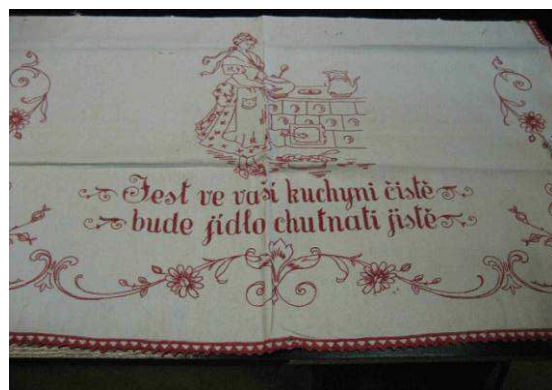 Jest ve vaší kuchyni čistě
bude jídlo chutnati jistě